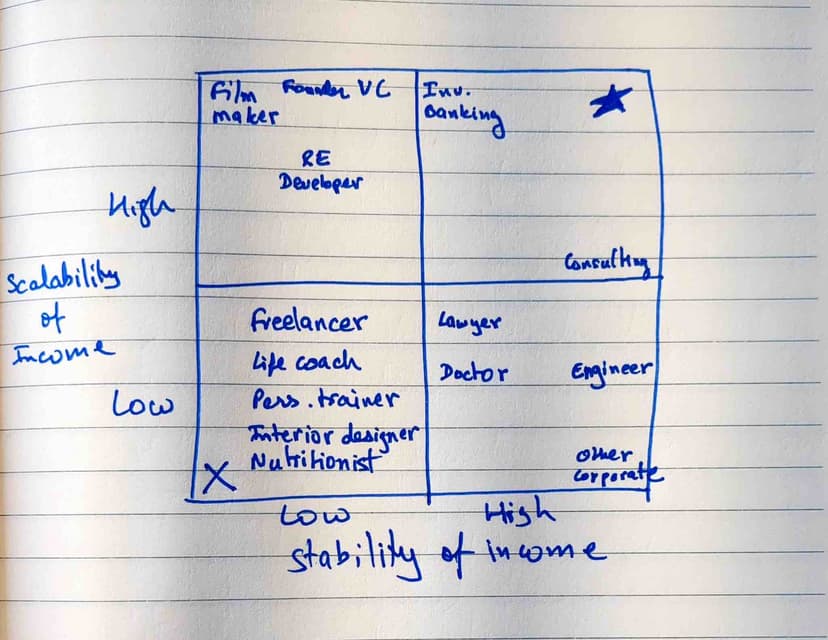 Film Founder VC
maker
RE
Developer
Inv.
Banking
Consulting
High
Scalability
of
Income
Low
Freelancer
Life coach
Pers. trainer
Interior designer
Nutritionist
Lawyer
Doctor
Engineer
Other
Corporate
X
Low
High
Stability of income